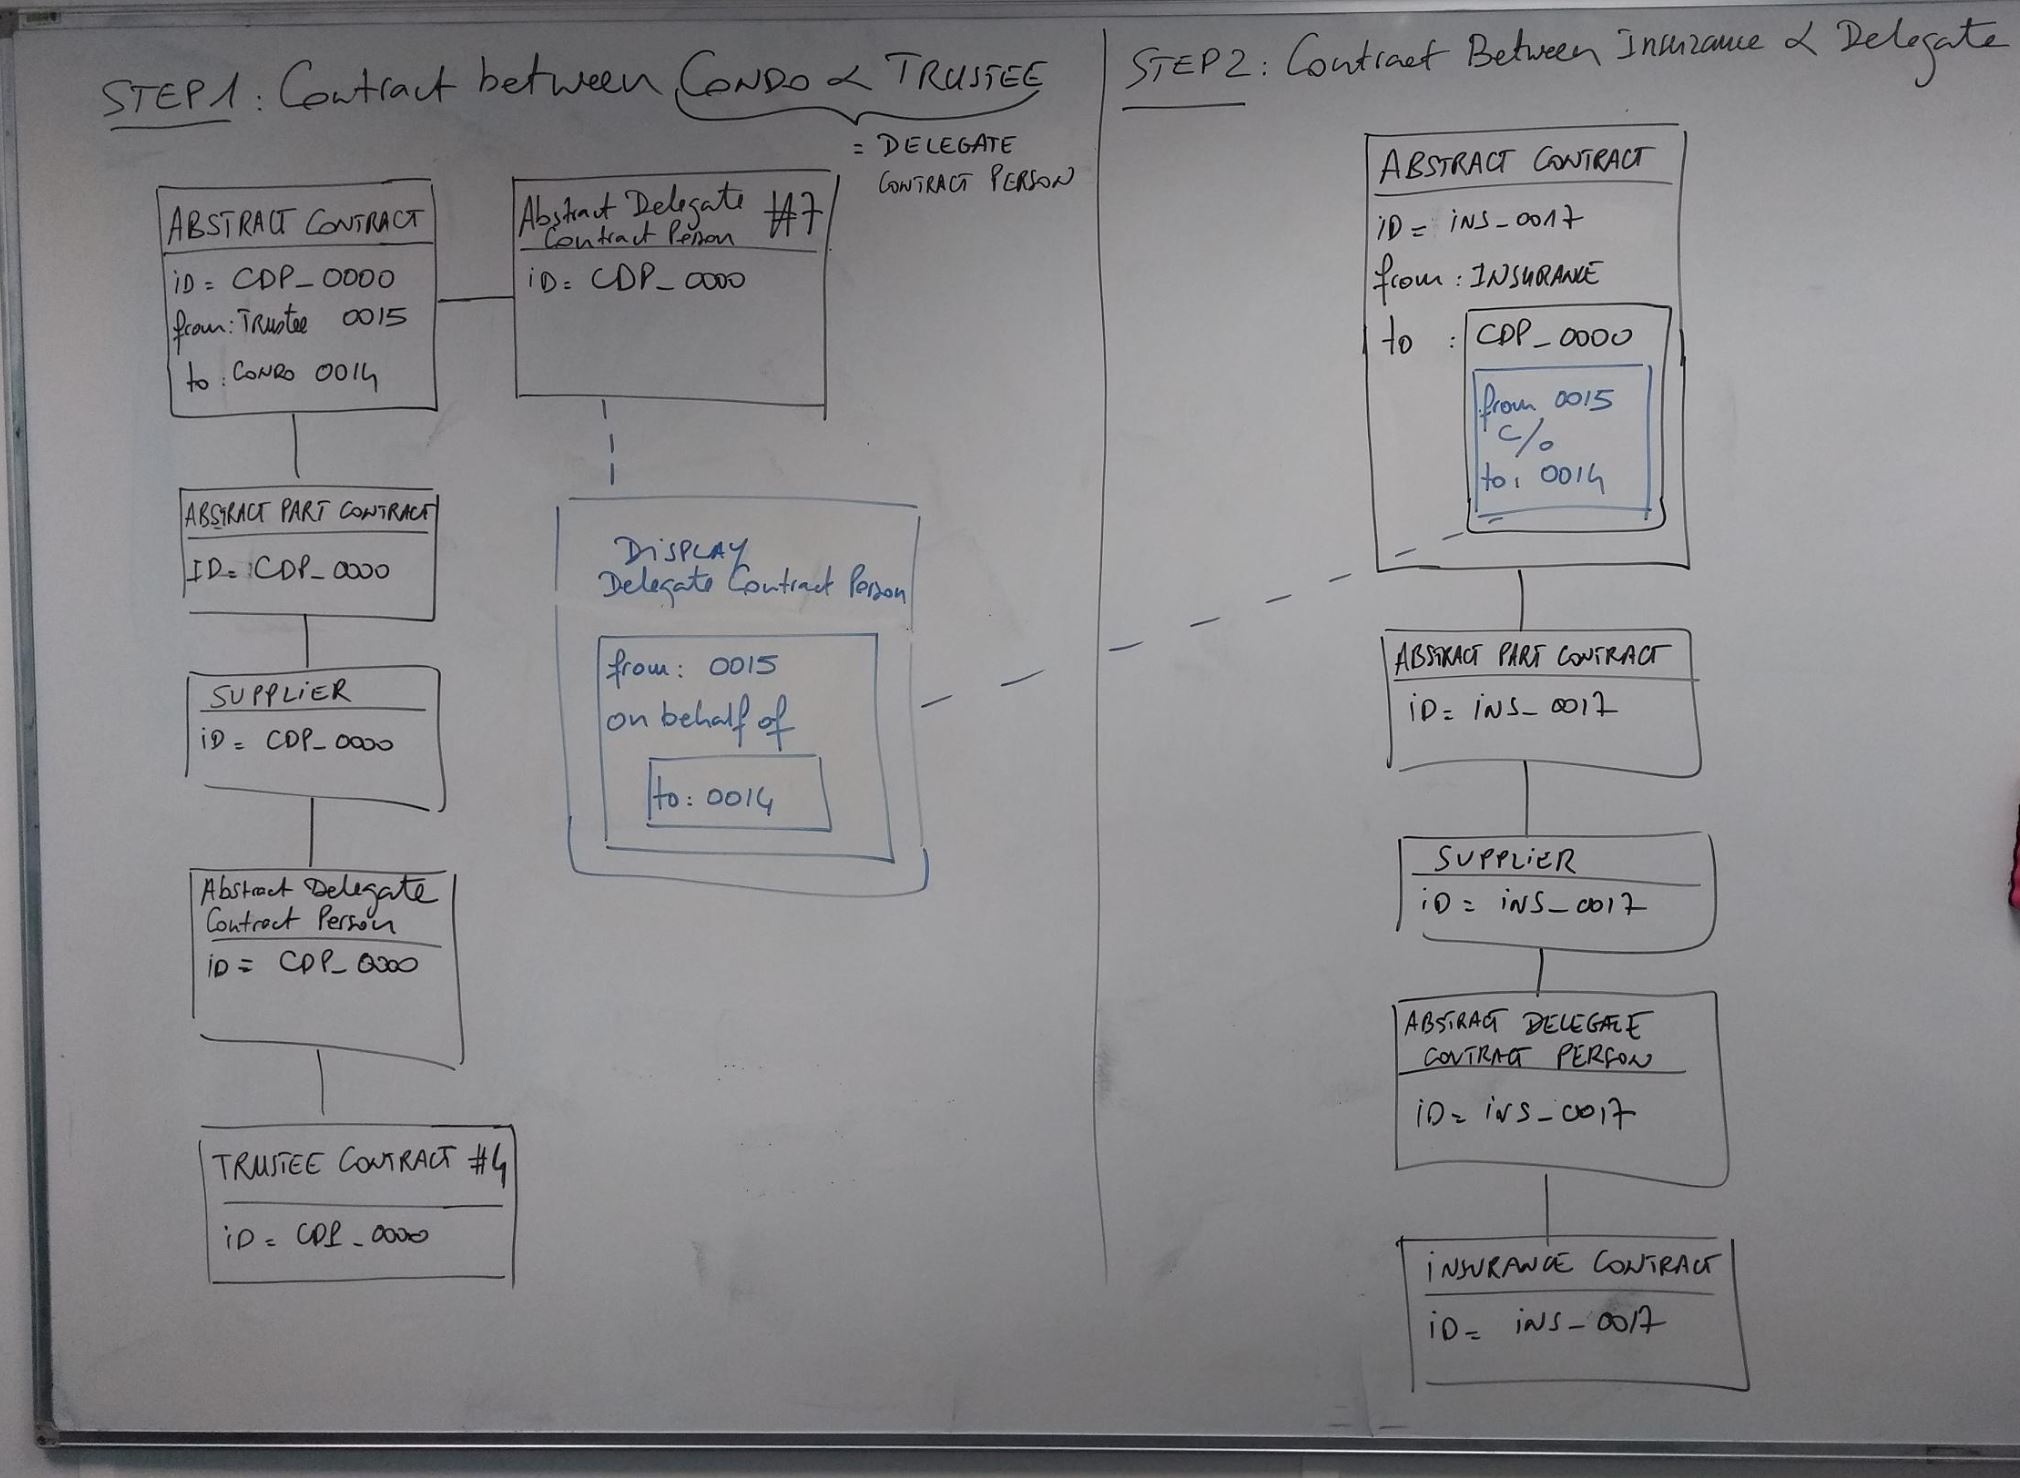 STEP1: Contract between CONDO & TRUSTEE
= DELEGATE
CONTRACT PERSON
ABSTRACT CONTRACT
iD = CDP_0000
from: Trustee 0015
to: CONDO 0014
Abstract Delegate #7
Contract Person
iD: CDP_0000
ABSTRACT PART CONTRACT
ID= CDP_0000
SUPPLiER
iD = CDP_0000
Abstract Delegate
Contract Person
iD = CDP_0000
TRUSTEE CONTRACT #4
iD = CDP_0000
DiSPLAY
Delegate Contract Person
from: 0015
on behalf of
to: 0014
STEP2: Contract Between Insurance & Delegate
ABSTRACT CONTRACT
iD = iNS_0017
from: INSURANCE
to : CDP_0000
from 0015
c/o
to: 0014
ABSTRACT PART CONTRACT
iD= iNS_0017
SUPPLiER
iD = iNS_0017
ABSTRACT DELEGATE
CONTRACT PERSON
iD= iNS_0017
iNSURANCE CONTRACT
iD= iNS_0017